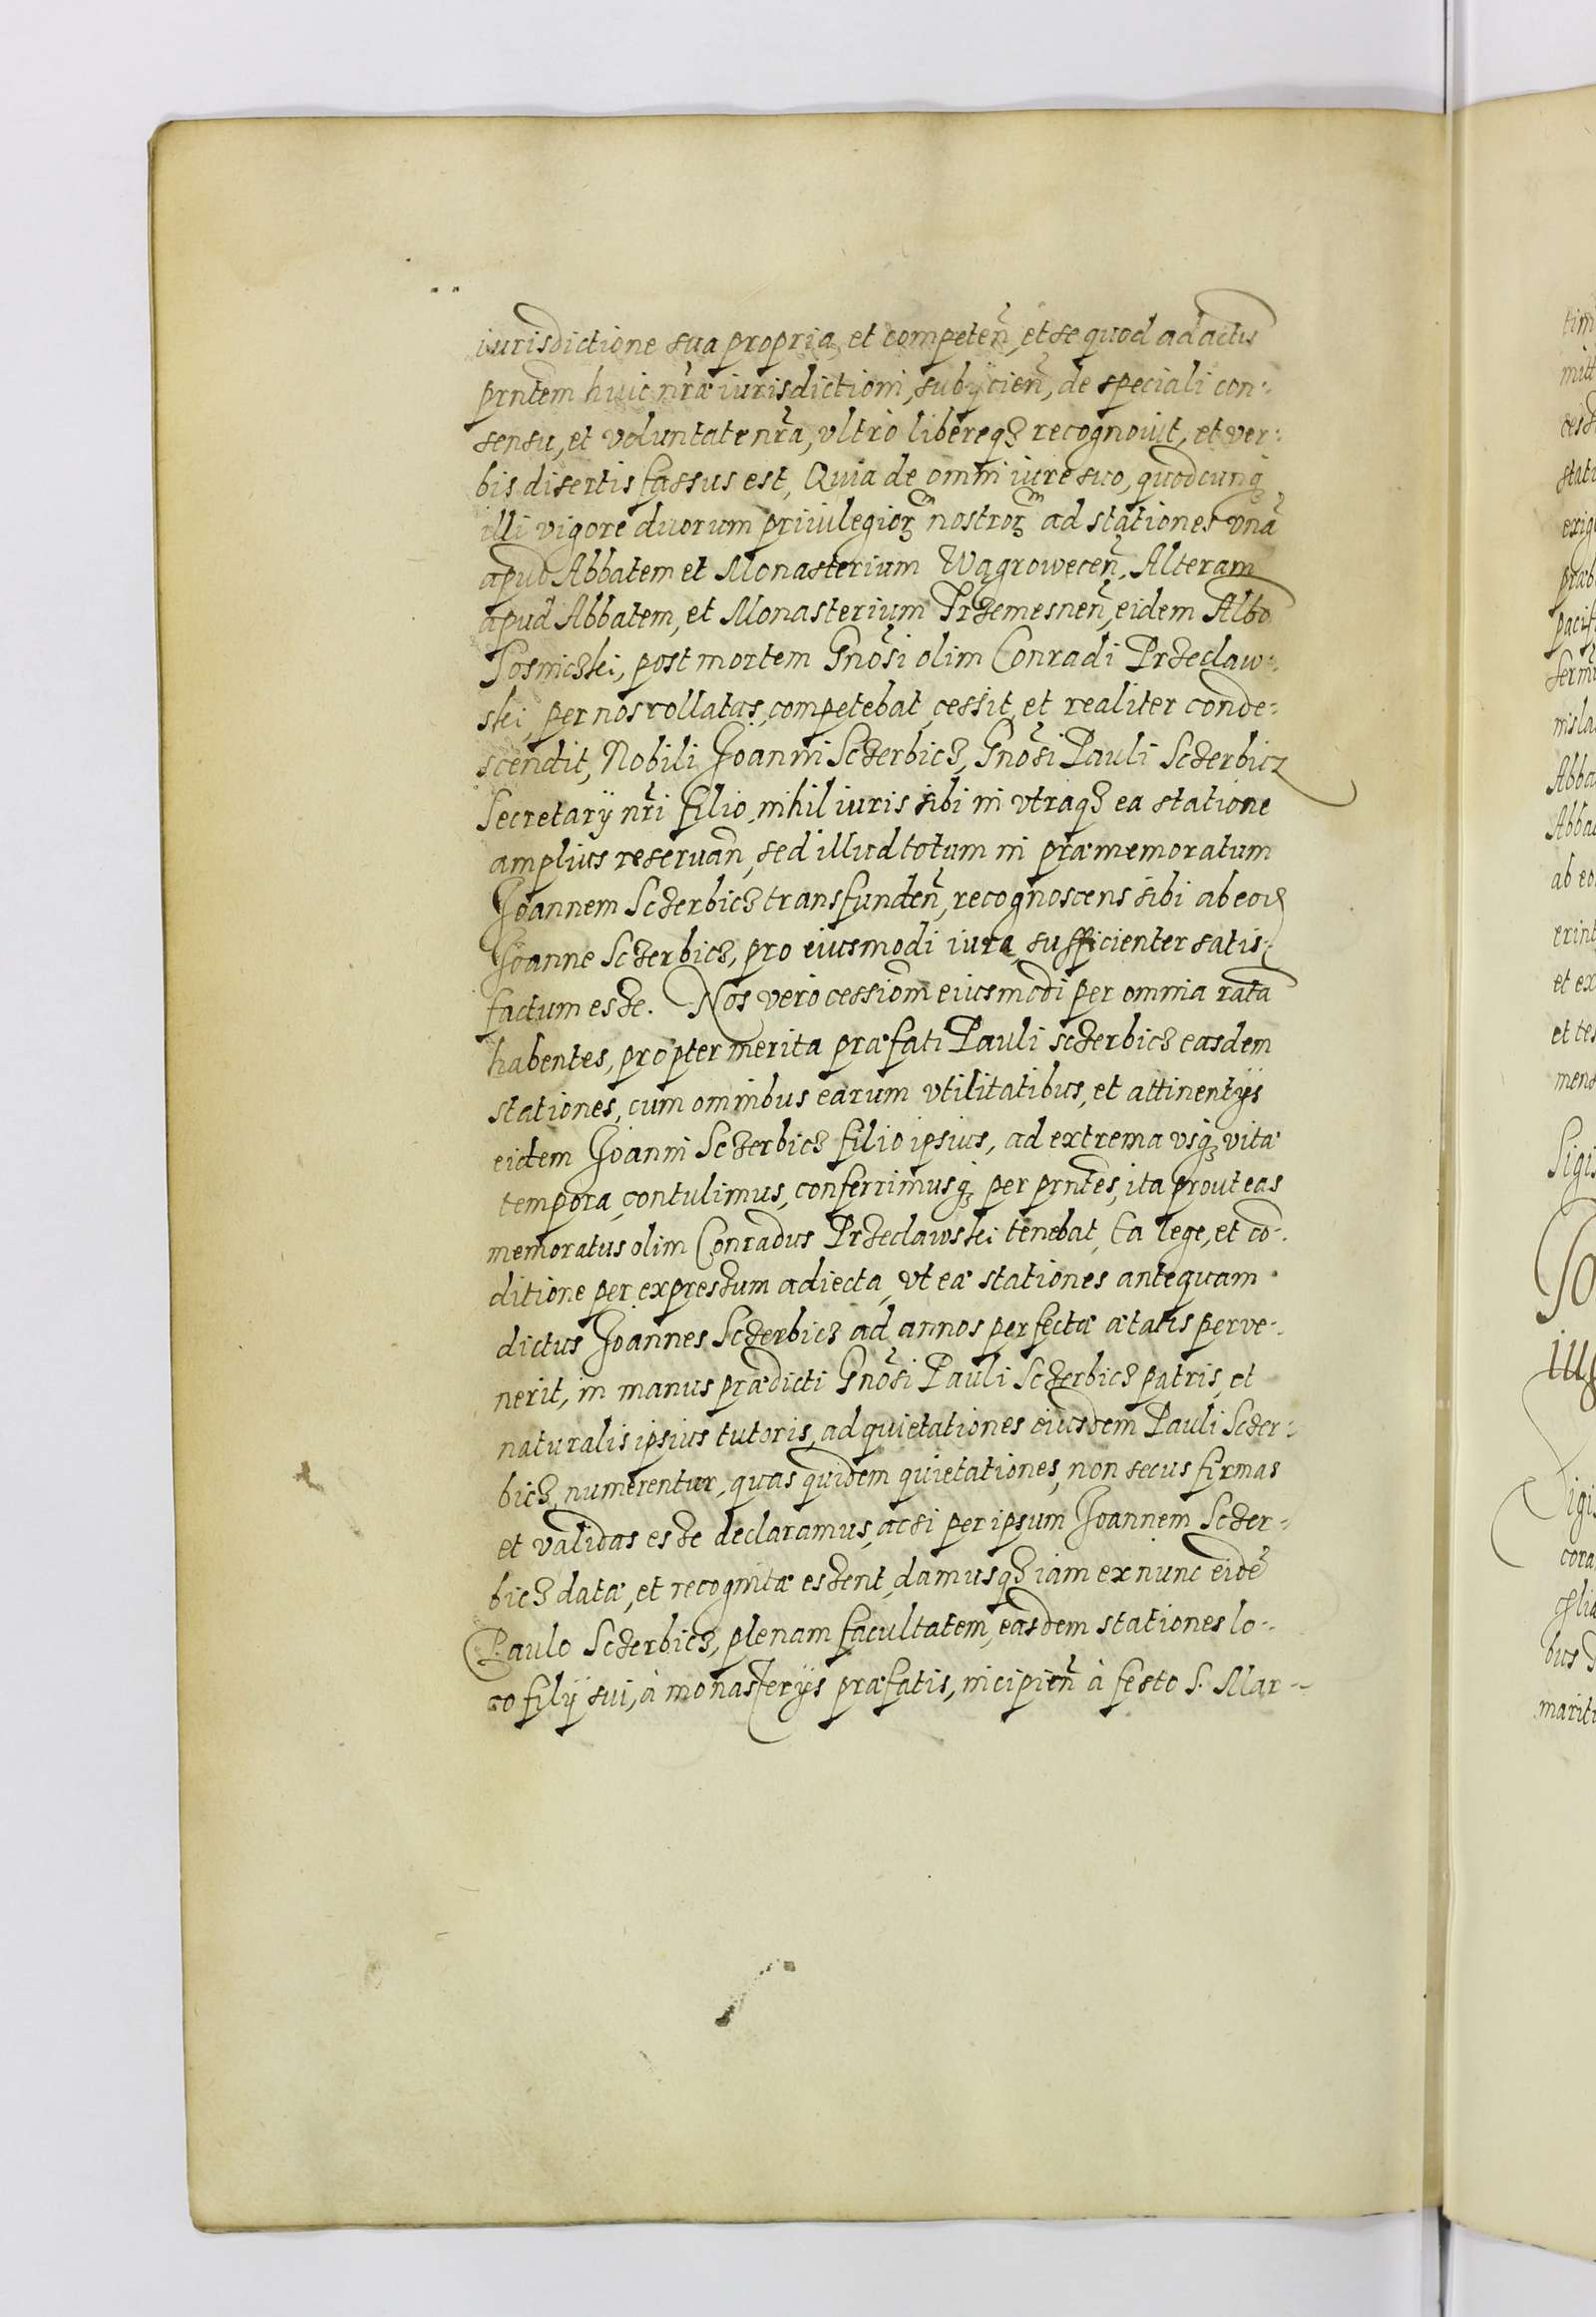 iurisdictione sua propria et competeñ, et se quod ad actũ
prñtem huic nr̃æ iurisdictioni, subÿcieñ, de speciali con-
sensu, et voluntate nr̃a, vltrò libereqꝫ recognovit, et ver-
bis disertis fassus est, Quia de omni iure suo, quodcunqꝫ
illi vigore duorum priuilegioꝝ nostroꝝ ad stationes vnã
apud Abbatem et Monasterium Wągrowecen̄, Alteram
apud Abbatem, et Monasterium Trzemesnen̄, eidem Albo
Cosniczki, post mortem Gnõsi olim Conradi Przeclaw-
ski, per nos collatas, competebat, cessit, et realiter conde-
scendit, Nobili Joanni Sczerbicz, Gnõsi Pauli Sczerbicz
Secretarÿ nr̃i filio, nihil iuris sibi in vtraqꝫ ea statione
amplius reseruan̄, sed illud totum in præmemoratum
Joannem Sczerbicz transfunden̄, recognoscens sibi ab eod̃
Joanne Sczerbicz, pro eiusmodi iura, sufficienter satis-
factum esse. Nos verò cessiom̃ eiusmodi per omnia ratã
habentes, propter merita præfati Pauli Sczerbicz easdem
stationes, cum omnibus earum vtilitatibus, et attinentÿs
eidem Joanni Sczerbicz filio ipsius, ad extrema vsqꝫ vitæ
tempora, contulimus, conferrimusqꝫ per prñtes, ita prout eas
memoratus olim Conradus Przeclawski tenebat, Ea lege, et cõ-
ditione per expressum adiecta, vt eæ stationes antequam
dictus Joannes Sczerbicz ad annos perfectæ ætatis perve-
nerit, in manus prædicti Gnõsi Pauli Sczerbicz patris, et
naturalis ipsius tutoris, ad quietationes eiusdem Pauli Sczer-
bicz numerentur, quas quidem quietationes, non secus firmas
et validas esse declaramus, acsi per ipsum Joannem Sczer-
bicz datæ, et recognitæ essent, damusqꝫ iam ex nunc eidẽ
Paulo Sczerbicz, plenam facultatem, easdem stationes lo-
co filÿ sui, à monasterÿs præfatis, incipien̄ à festo S. Mar-